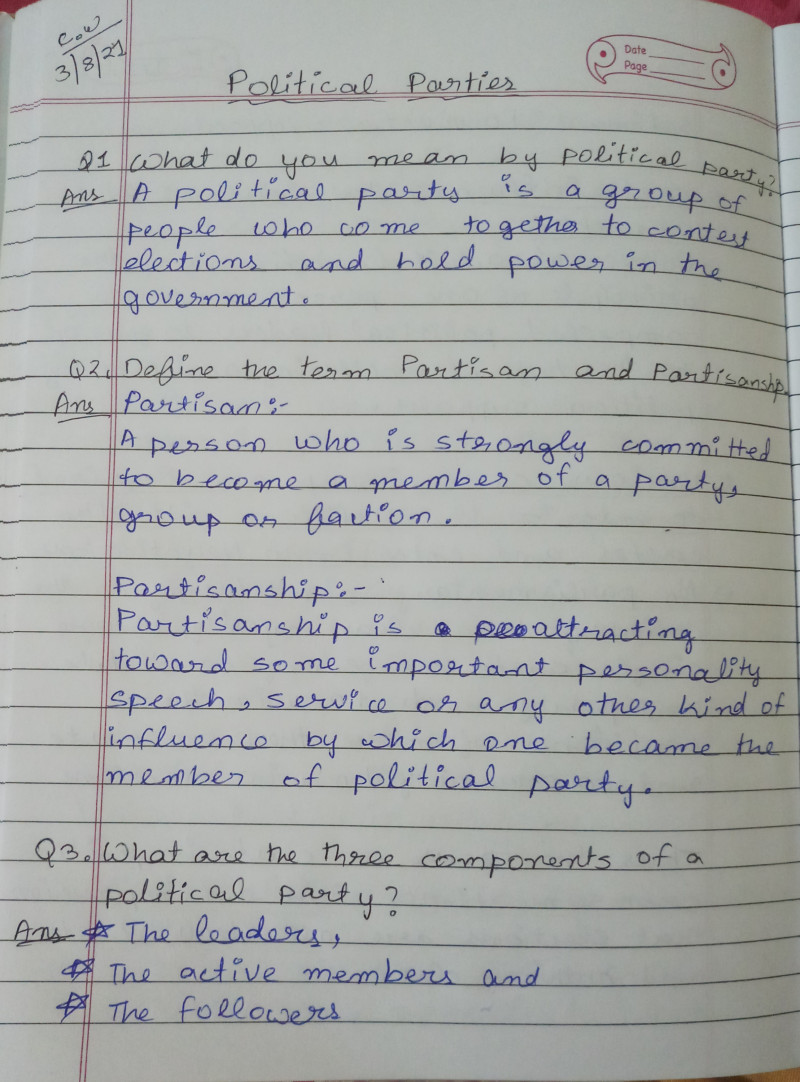 C.W
3/8/21
Date
Page
Political Parties
Q1 What do you mean by political party?
Ans A political party is a group of
people who come together to contest
elections and hold power in the
government.
Q2. Define the term Partisan and Partisanship.
Ans Partisan:-
A person who is strongly committed
to become a member of a party,
group or faction.
Partisanship:-
Partisanship is attracting
toward some important personality
speech, service or any other kind of
influence by which one became the
member of political party.
Q3. What are the three components of a
political party?
Ans ☆ The leaders,
☆ The active members and
☆ The followers